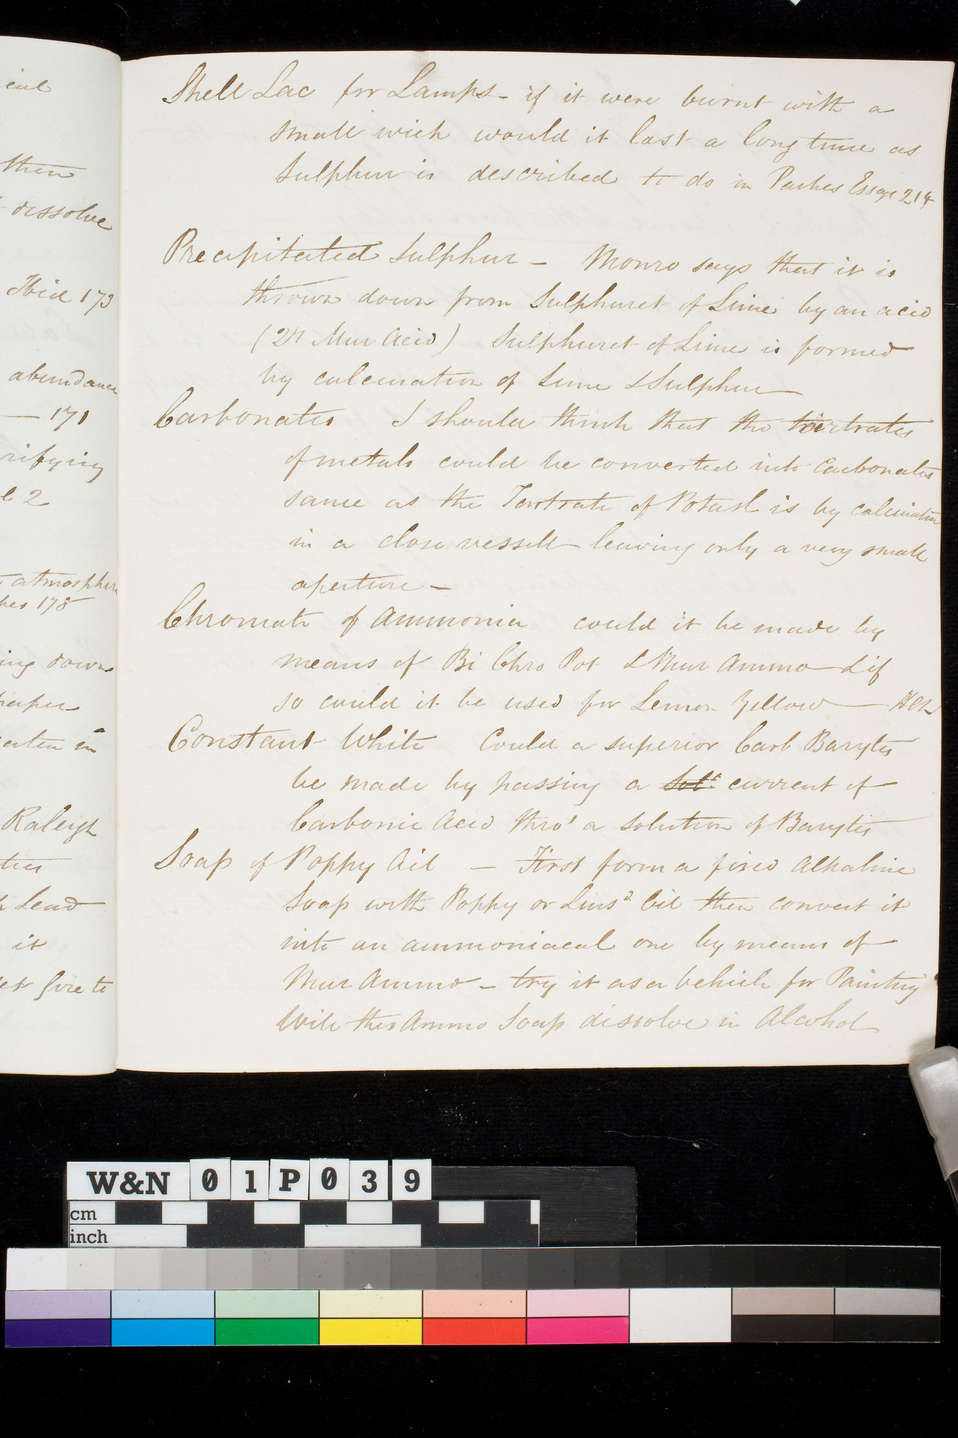 ical
then
dissolve
Ibid 173
abundance
— 171
rifying
e 2
atmosphere
kes 178
ing down
paper
eaten in
Raleigh
ties
Lead
it
set fire to
Shell Lac for Lamps - if it were burnt with a
small wick would it last a long time as
Sulphur is described to do in Parkes Essays 214
Precipitated Sulphur - Monro says that it is
thrown down from Sulphuret of Lime by an acid
(2H Mur Acid) Sulphuret of Lime is formed
by calcination of Lime & Sulphur
Carbonates I should think that the tartrates
of metals could be converted into Carbonates
same as the Tartrate of Potash is by calcination
in a close vessell leaving only a very small
aperture -
Chromate of Ammonia could it be made by
means of Bi Chro Pot & Mur Ammo & if
so could it be used for Lemon Yellow — HCN
Constant White Could a superior Carb Barytes
be made by passing a Solt current of
Carbonic Acid thro' a solution of Barytes
Soap of Poppy Oil — First form a fixed Alkaline
Soap with Poppy or Linsd Oil then convert it
into an ammoniacal one by means of
Mur Ammo - try it as a Vehicle for Painting
Will this Ammo Soap dissolve in Alcohol
W&N 01P039
cm
inch